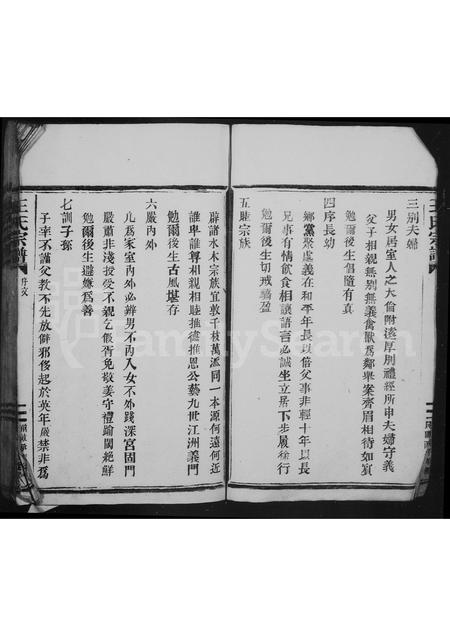 三別夫婦
男女居室人之大倫附遠厚別禮經所申夫婦守義
父子相親無別無義禽獸為鄰舉案齊眉相待如賓
勉爾後生倡隨有真
四序長幼
鄉黨聚處義在和平年長以倍父事非輕十年以長
兄事有情飲食相讓語言必誠坐立居下步履徐行
勉爾後生切戒驕盈
五睦宗族
辟諸水木宗族宜敦千枝萬派同一本源何遠何近
誰卑誰尊相親相睦推德推恩公藝九世江州義門
勉爾後生古風堪存
六嚴內外
凡為家室內外必辨男不內入女不外踐深宮固門
嚴肅非淺授受不親乞假胥免敬姜守禮踰閾絕鮮
勉爾後生避嫌為善
七訓子孫
子率不謹父教不先放僻邪侈起於英年嚴禁非為
王氏宗譜
FamilySearch